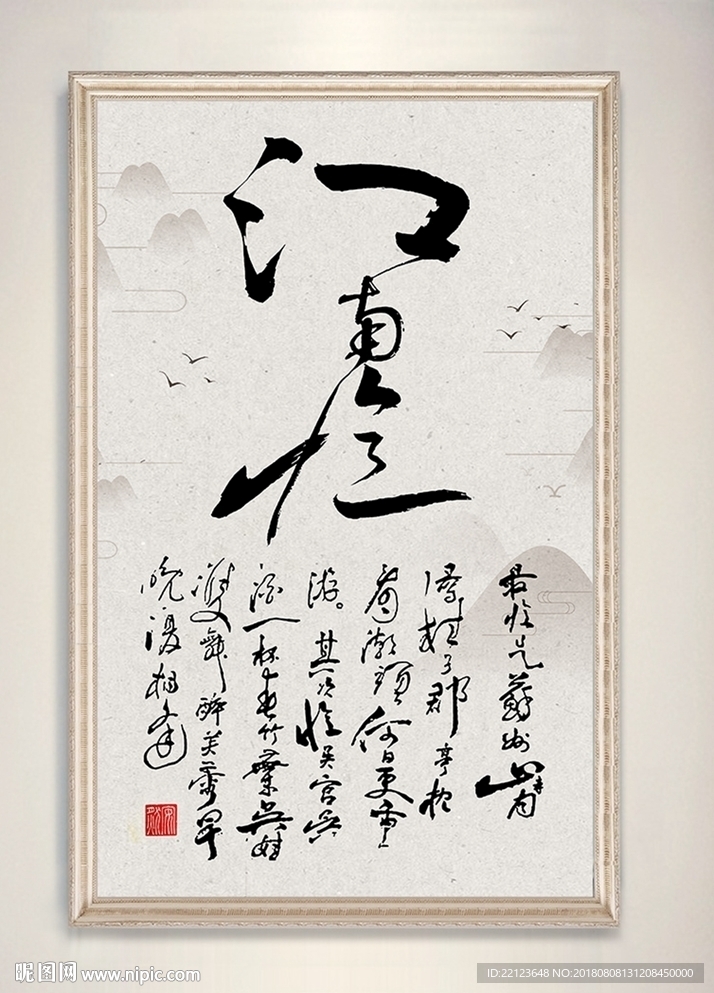 江南憶
最憶是蘇州山寺月
尋桂子郡亭枕
看潮頭何日更重
游。其次憶吴宫吴
酒一杯春竹葉吴娃
雙舞醉芙蓉早
晚復相逢
昵图网 www.nipic.com
ID:22123648 NO:20180808131208450000